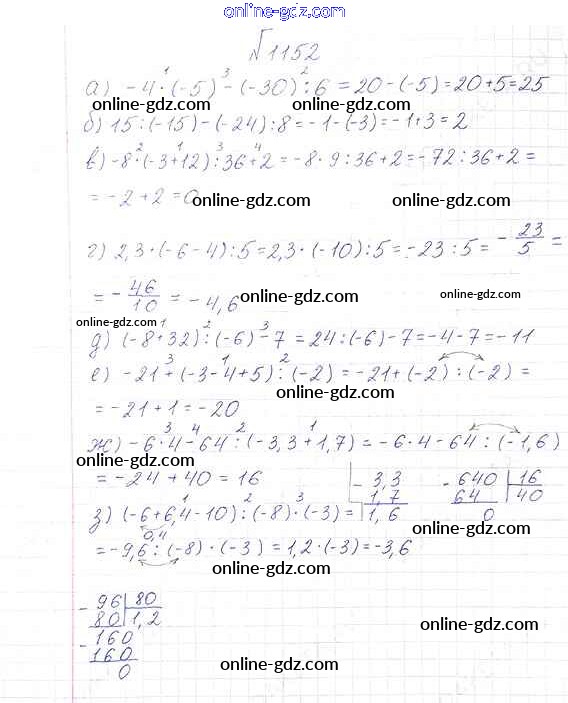 online-gdz.com
№1152
а) -4·(-5) - (-30) : 6 = 20 - (-5) = 20 + 5 = 25
online-gdz.com online-gdz.com
б) 15 : (-15) - (-24) : 8 = -1 - (-3) = -1 + 3 = 2
в) -8·(-3+12) : 36 + 2 = -8·9 : 36 + 2 = -72 : 36 + 2 =
= -2 + 2 = 0 online-gdz.com online-gdz.com
г) 2,3·(-6-4) : 5 = 2,3·(-10) : 5 = -23 : 5 = -23/5 =
= -46/10 = -4,6 online-gdz.com online-gdz.com
online-gdz.com
д) (-8+32) : (-6) - 7 = 24 : (-6) - 7 = -4 - 7 = -11
е) -21 + (-3-4+5) : (-2) = -21 + (-2) : (-2) =
online-gdz.com online-gdz.com
= -21 + 1 = -20
ж) -6·4 - 64 : (-3,3+1,7) = -6·4 - 64 : (-1,6)
online-gdz.com
= -24 + 40 = 16
- 3,3
1,7
1,6
- 640 16
64 40
0
online-gdz.com online-gdz.com
з) (-6+6,4-10) : (-8)·(-3) =
0,4
= -9,6 : (-8)·(-3) = 1,2·(-3) = -3,6
online-gdz.com
- 96 80
80 1,2
- 160
160
0
online-gdz.com online-gdz.com
online-gdz.com